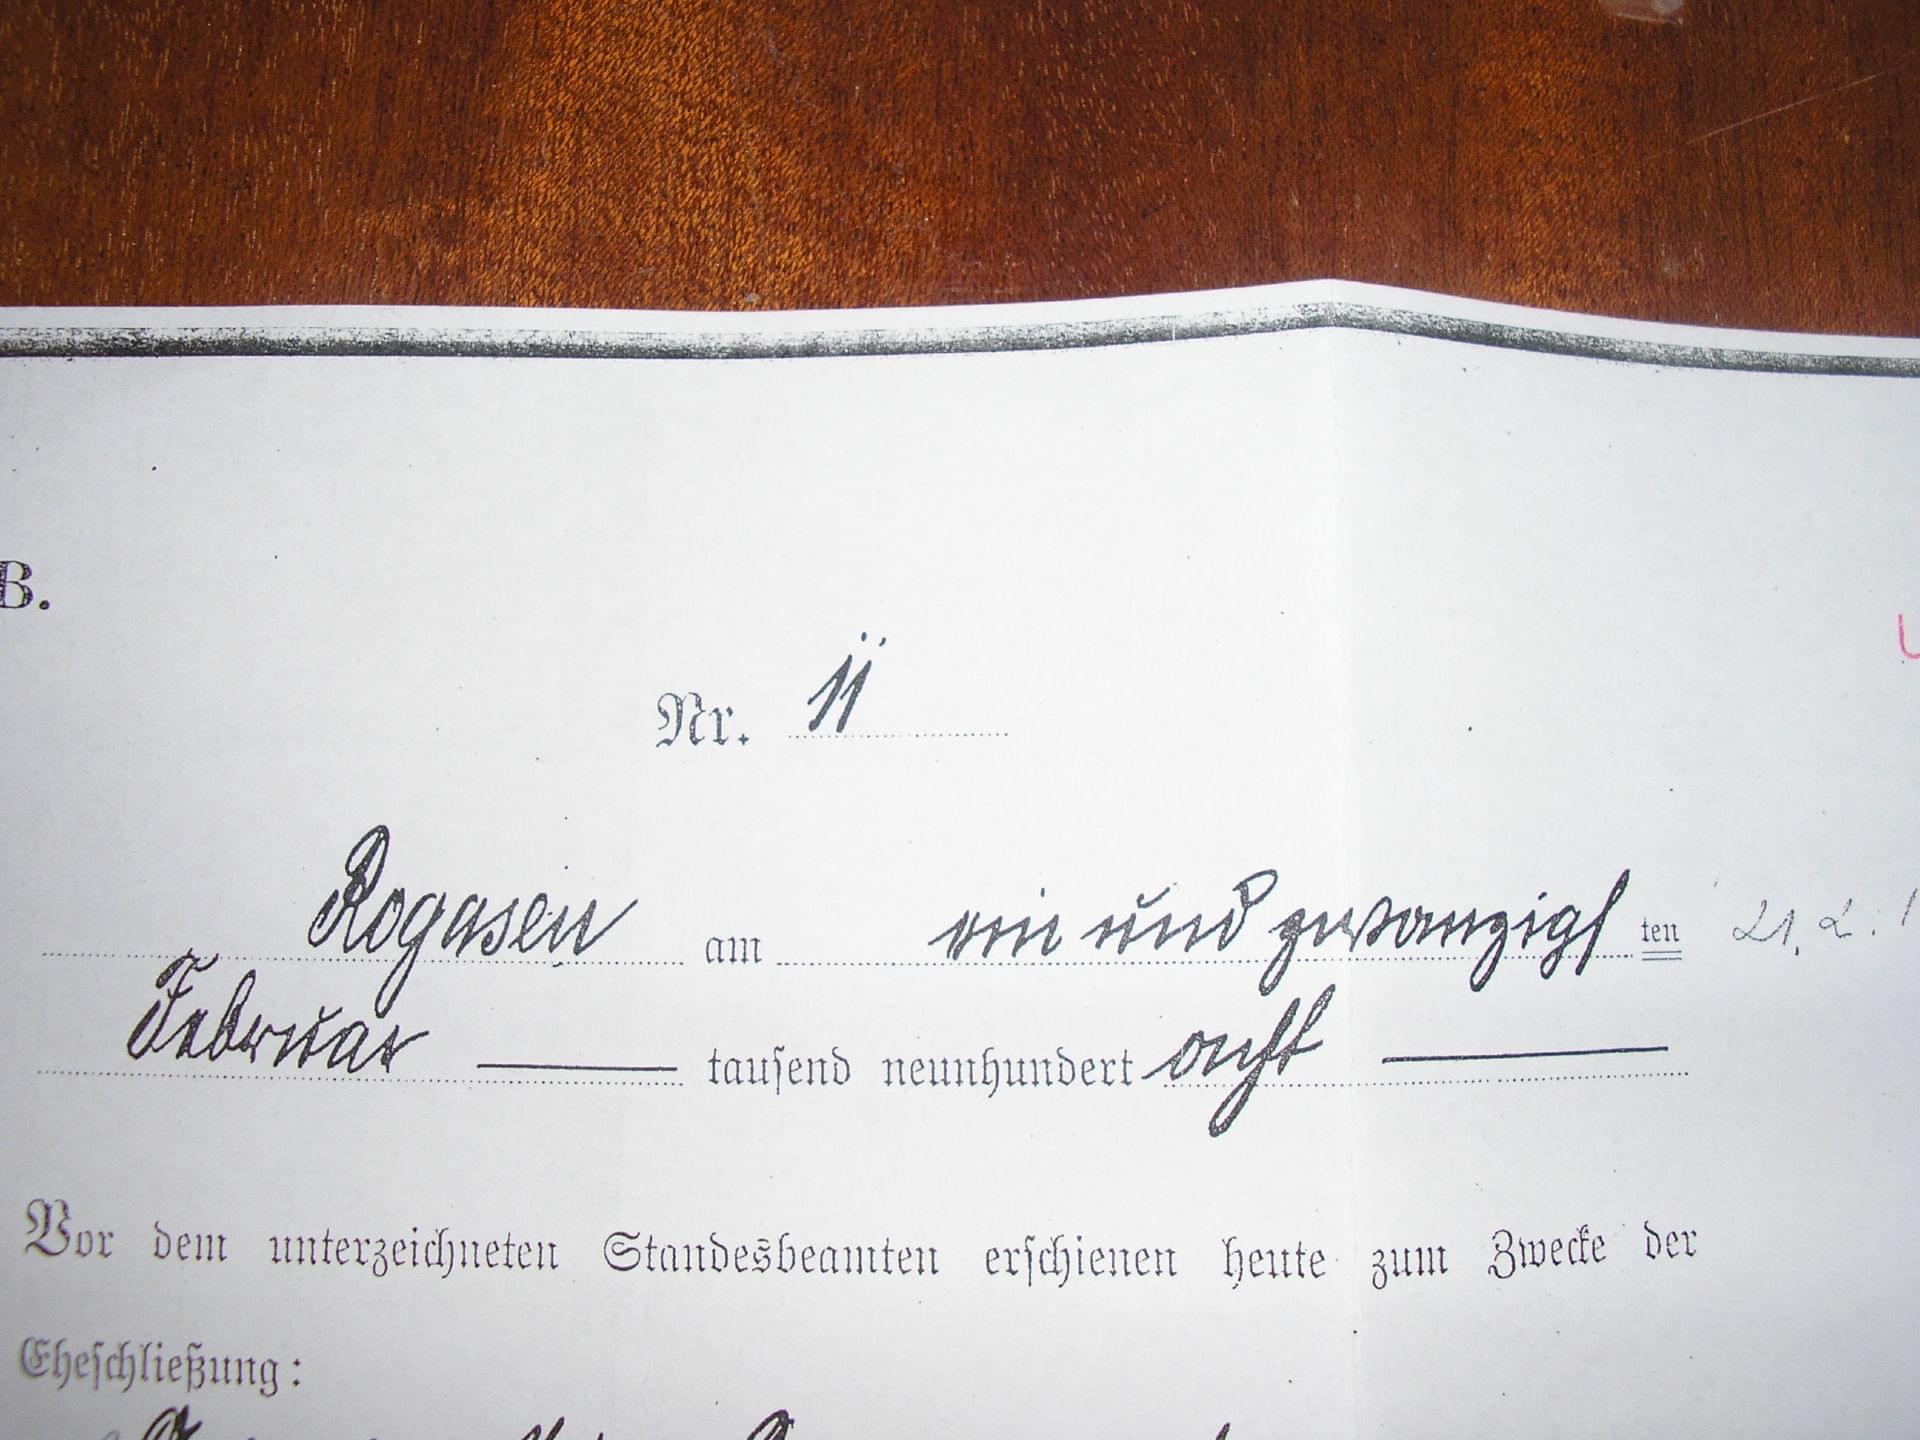 B.
Nr. 11
Rogasen am ein und zwanzigsten 21. 2. 1
Februar tausend neunhundert acht
Vor dem unterzeichneten Standesbeamten erschienen heute zum Zwecke der
Eheschließung: